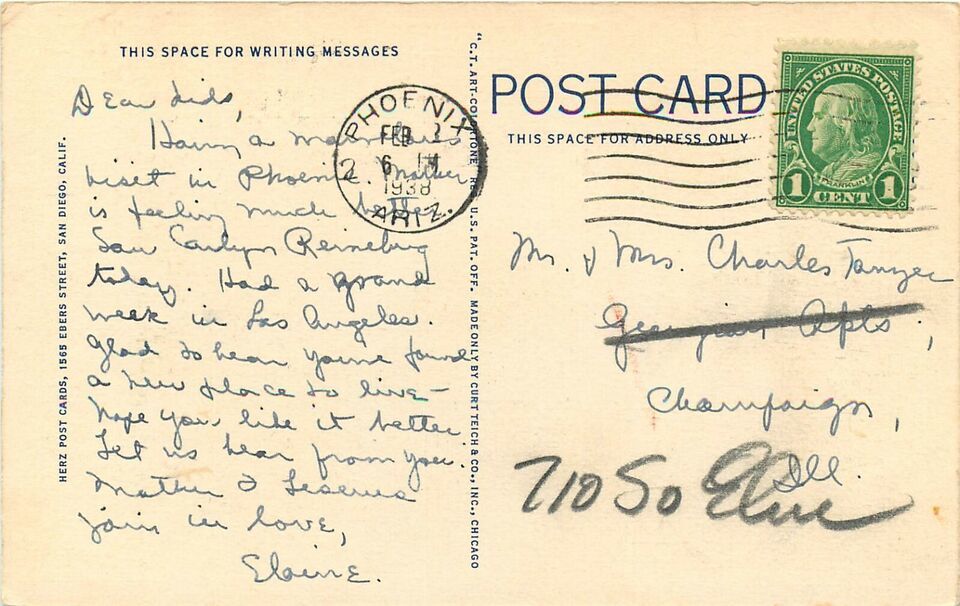 THIS SPACE FOR WRITING MESSAGES
Dear
Having a marvelous
visit in Phoenix. Mother
is feeling much better
Saw Carolyn
today. Had a grand
week in Los Angeles.
Glad to hear you've found
a new place to live—
hope you like it better.
Let us hear from you.
Mother &
join in love,
Elaine.
HERZ POST CARDS, 1565 EBERS STREET, SAN DIEGO, CALIF.
"C.T. ART-COLORTONE" REG. U.S. PAT. OFF. MADE ONLY BY CURT TEICH & CO., INC., CHICAGO
PHOENIX
FEB
6 PM
1938
ARIZ.
2
POST CARD
THIS SPACE FOR ADDRESS ONLY
UNITED STATES POSTAGE
FRANKLIN
1 CENT 1
Mr. & Mrs. Charles
Georgian Apts.,
Champaign,
Ill.
710 So